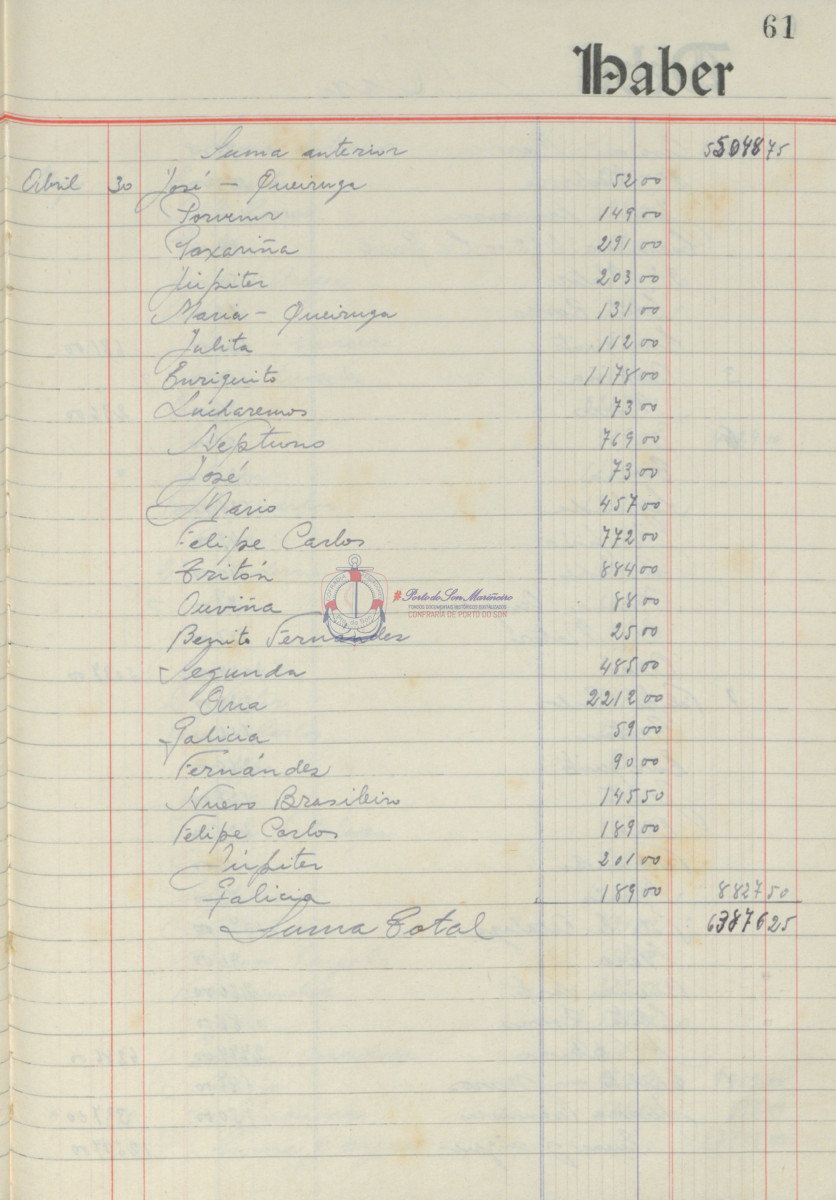 61
Haber
Suma anterior 5504875
Abril 30 José - Queiruga 52 00
Porvenir 149 00
Paxariña 291 00
Júpiter 203 00
Maria - Queiruga 131 00
Julita 112 00
Enriquito 1178 00
Lucharemos 73 00
Neptuno 769 00
José 73 00
Mario 457 00
Felipe Carlos 772 00
Tritón 884 00
Ouviña 88 00
#Porto do Son Mariñeiro
FONDOS DOCUMENTAIS HISTÓRICOS DIXITALIZADOS
CONFRARÍA DE PORTO DO SON
Benito Fernández 25 00
Segunda 485 00
Ona 2212 00
Galicia 59 00
Fernández 90 00
Nuevo Brasileiro 145 50
Felipe Carlos 189 00
Júpiter 201 00
Galicia 189 00 8827 50
Suma Total 6387625